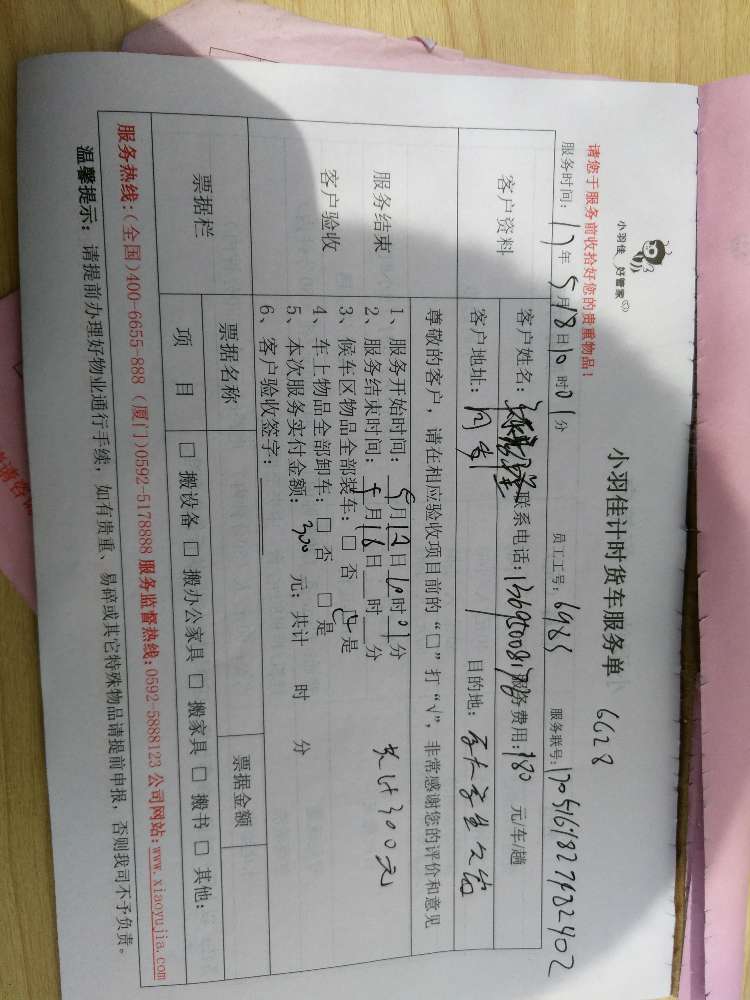 小羽佳 好管家
小羽佳计时货车服务单
6628
请您于服务前收拾好您的贵重物品!
服务时间: 17年 5月18日10时01分 员工工号: 6985 服务联号:
客户资料
客户姓名: 联系电话: 服务费用: 180 元/车/趟
客户地址: 目的地:
尊敬的客户, 请在相应验收项目前的“□”打“√”, 非常感谢您的评价和意见
服务结束
客户验收
1、服务开始时间: 月 日 时 分
2、服务结束时间: 月18日 时 分
3、候车区物品全部装车: □ 否 是
4、车上物品全部卸车: □ 否 □ 是
5、本次服务实付金额: 300 元; 共计 时 分
共计300元
6、客户验收签字:
票据栏
票据名称 票据金额
项 目 □ 搬设备 □ 搬办公家具 □ 搬家具 □ 搬书 □ 其他:
服务热线:(全国)400-6655-888 (厦门)0592-5178888 服务监督热线:0592-5888123 公司网站:www.xiaoyujia.com
温馨提示: 请提前办理好物业通行手续, 如有贵重、易碎或其它特殊物品请提前申报, 否则我司不予负责。